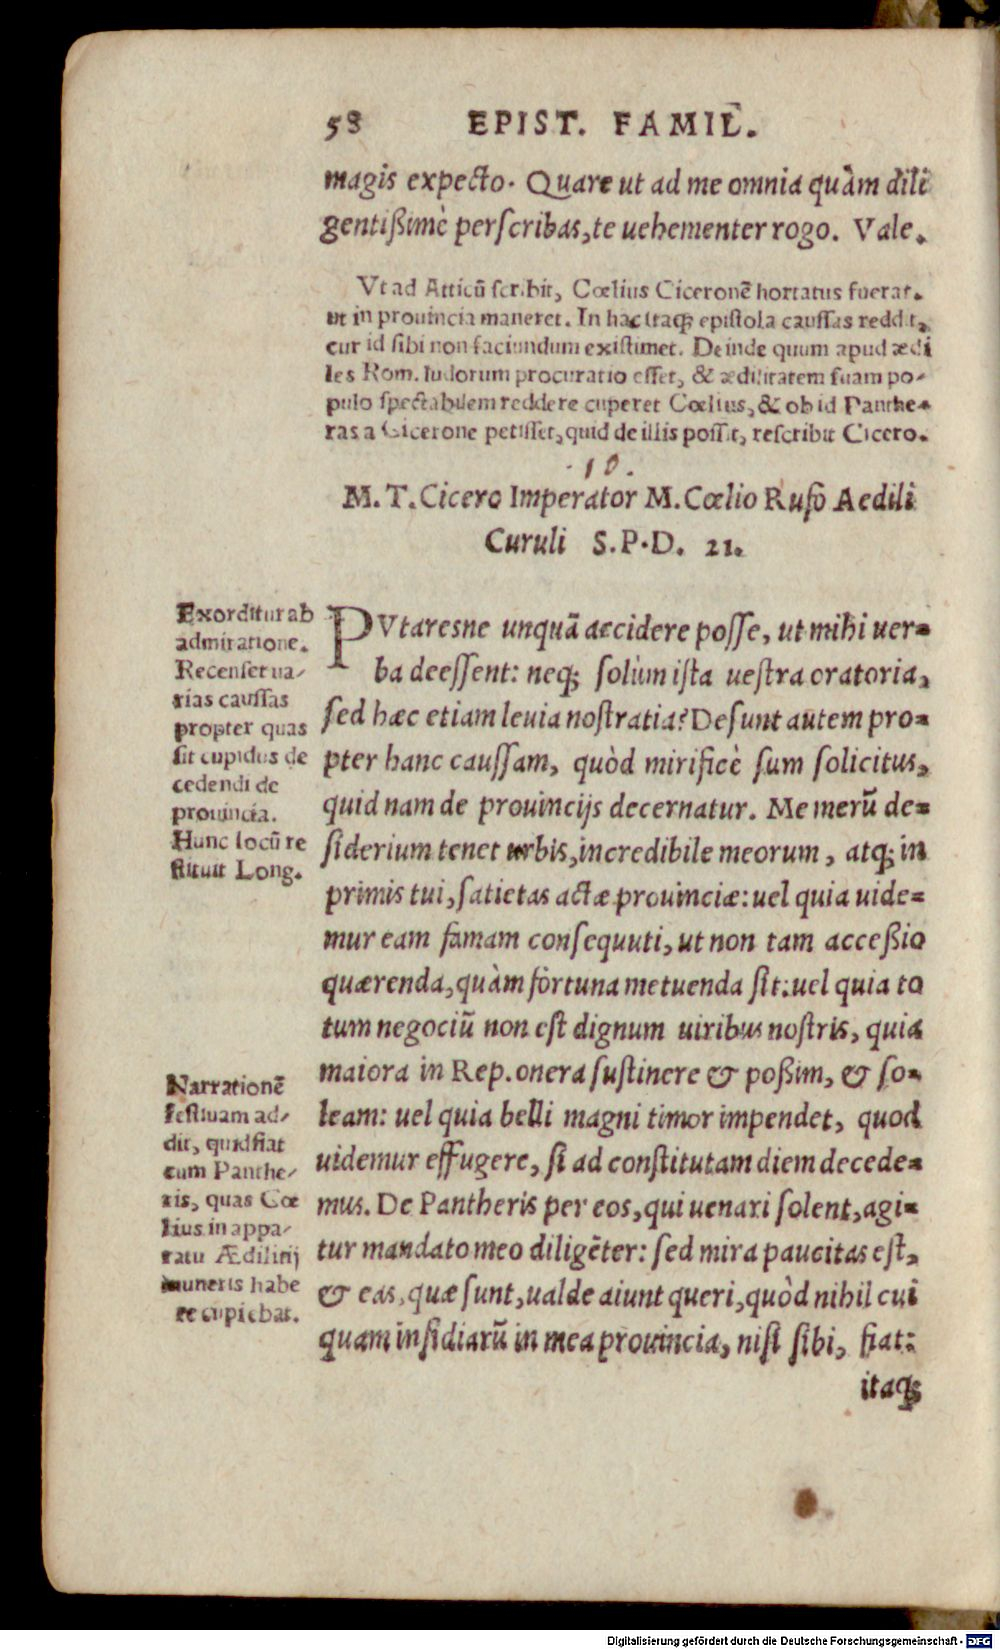 58 EPIST. FAMIL.
magis expecto. Quare ut ad me omnia quàm dili
gentißimè perscribas, te uehementer rogo. Vale.
Vt ad Atticū scribit, Cœlius Ciceronē hortatus fuerat,
ut in prouincia maneret. In hac itaq; epistola caussas reddit,
cur id sibi non faciundum existimet. Deinde quum apud ædi
les Rom. ludorum procuratio esset, & ædilitatem suam po-
pulo spectabilem reddere cuperet Cœlius, & ob id Panthe-
ras a Cicerone petisset, quid de illis possit, rescribit Cicero.
.10.
M. T. Cicero Imperator M. Cœlio Rufo Aedili
Curuli S.P.D. 21.
PVtaresne unquā accidere posse, ut mihi uer-
ba deessent: neq; solùm ista uestra oratoria,
sed hæc etiam leuia nostratia? Desunt autem pro-
pter hanc caussam, quòd mirificè sum solicitus,
quid nam de prouincijs decernatur. Me merū de-
siderium tenet urbis, incredibile meorum, atq; in
primis tui, satietas actæ prouinciæ: uel quia uide-
mur eam famam consequuti, ut non tam acceßio
quærenda, quàm fortuna metuenda sit: uel quia to
tum negociū non est dignum uiribus nostris, quia
maiora in Rep. onera sustinere & poßim, & so-
leam: uel quia belli magni timor impendet, quod
uidemur effugere, si ad constitutam diem decede-
mus. De Pantheris per eos, qui uenari solent, agi-
tur mandato meo diligēter: sed mira paucitas est,
& eas, quæ sunt, ualde aiunt queri, quòd nihil cui
quam insidiarū in mea prouincia, nisi sibi, fiat:
itaq;
Exorditur ab
admiratione.
Recenset ua-
rias caussas
propter quas
sit cupidus de
cedendi de
prouincia.
Hunc locū re
stituit Long.
Narrationē
festiuam ad-
dit, quid fiat
cum Panthe-
ris, quas Cœ
lius in appa-
ratu Ædilitij
muneris habe
re cupiebat.
Digitalisierung gefördert durch die Deutsche Forschungsgemeinschaft - DFG